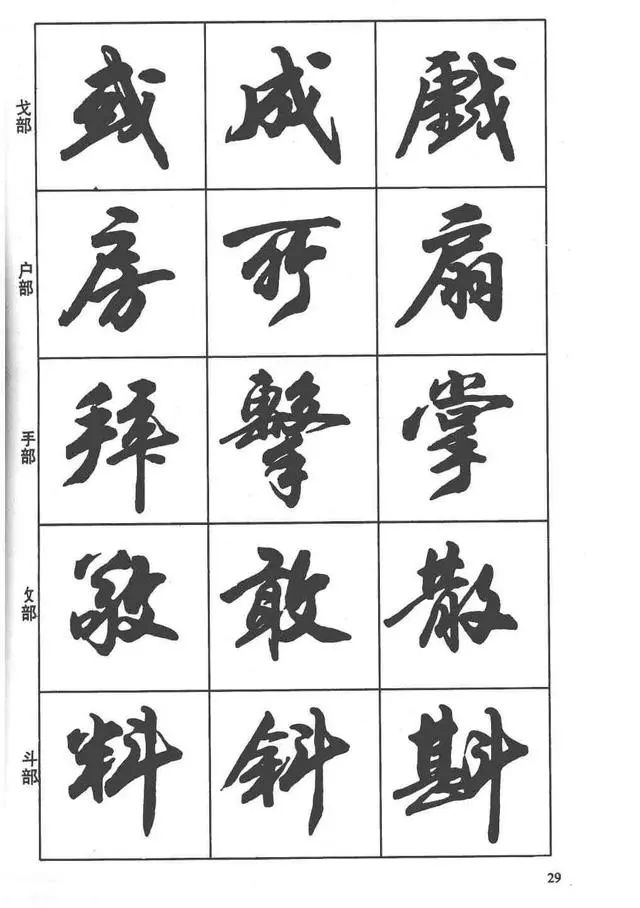 戈部 或 成 戲
户部 房 所 扇
手部 拜 擊 掌
攵部 敬 敢 散
斗部 料 斜 斟
29